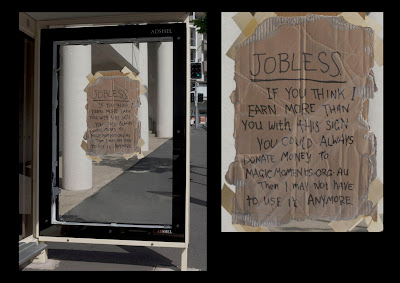 ADSHEL
JOBLESS
IF YOU THINK I
EARN MORE THAN
YOU WITH THIS SIGN
YOU COULD ALWAYS
DONATE MONEY TO
MAGICMOMENTS.ORG.AU
THEN I MAY NOT HAVE
TO USE IT ANYMORE
ADSHEL
JOBLESS
IF YOU THINK I
EARN MORE THAN
YOU WITH THIS SIGN
YOU COULD ALWAYS
DONATE MONEY TO
MAGICMOMENTS.ORG.AU
THEN I MAY NOT HAVE
TO USE IT ANYMORE